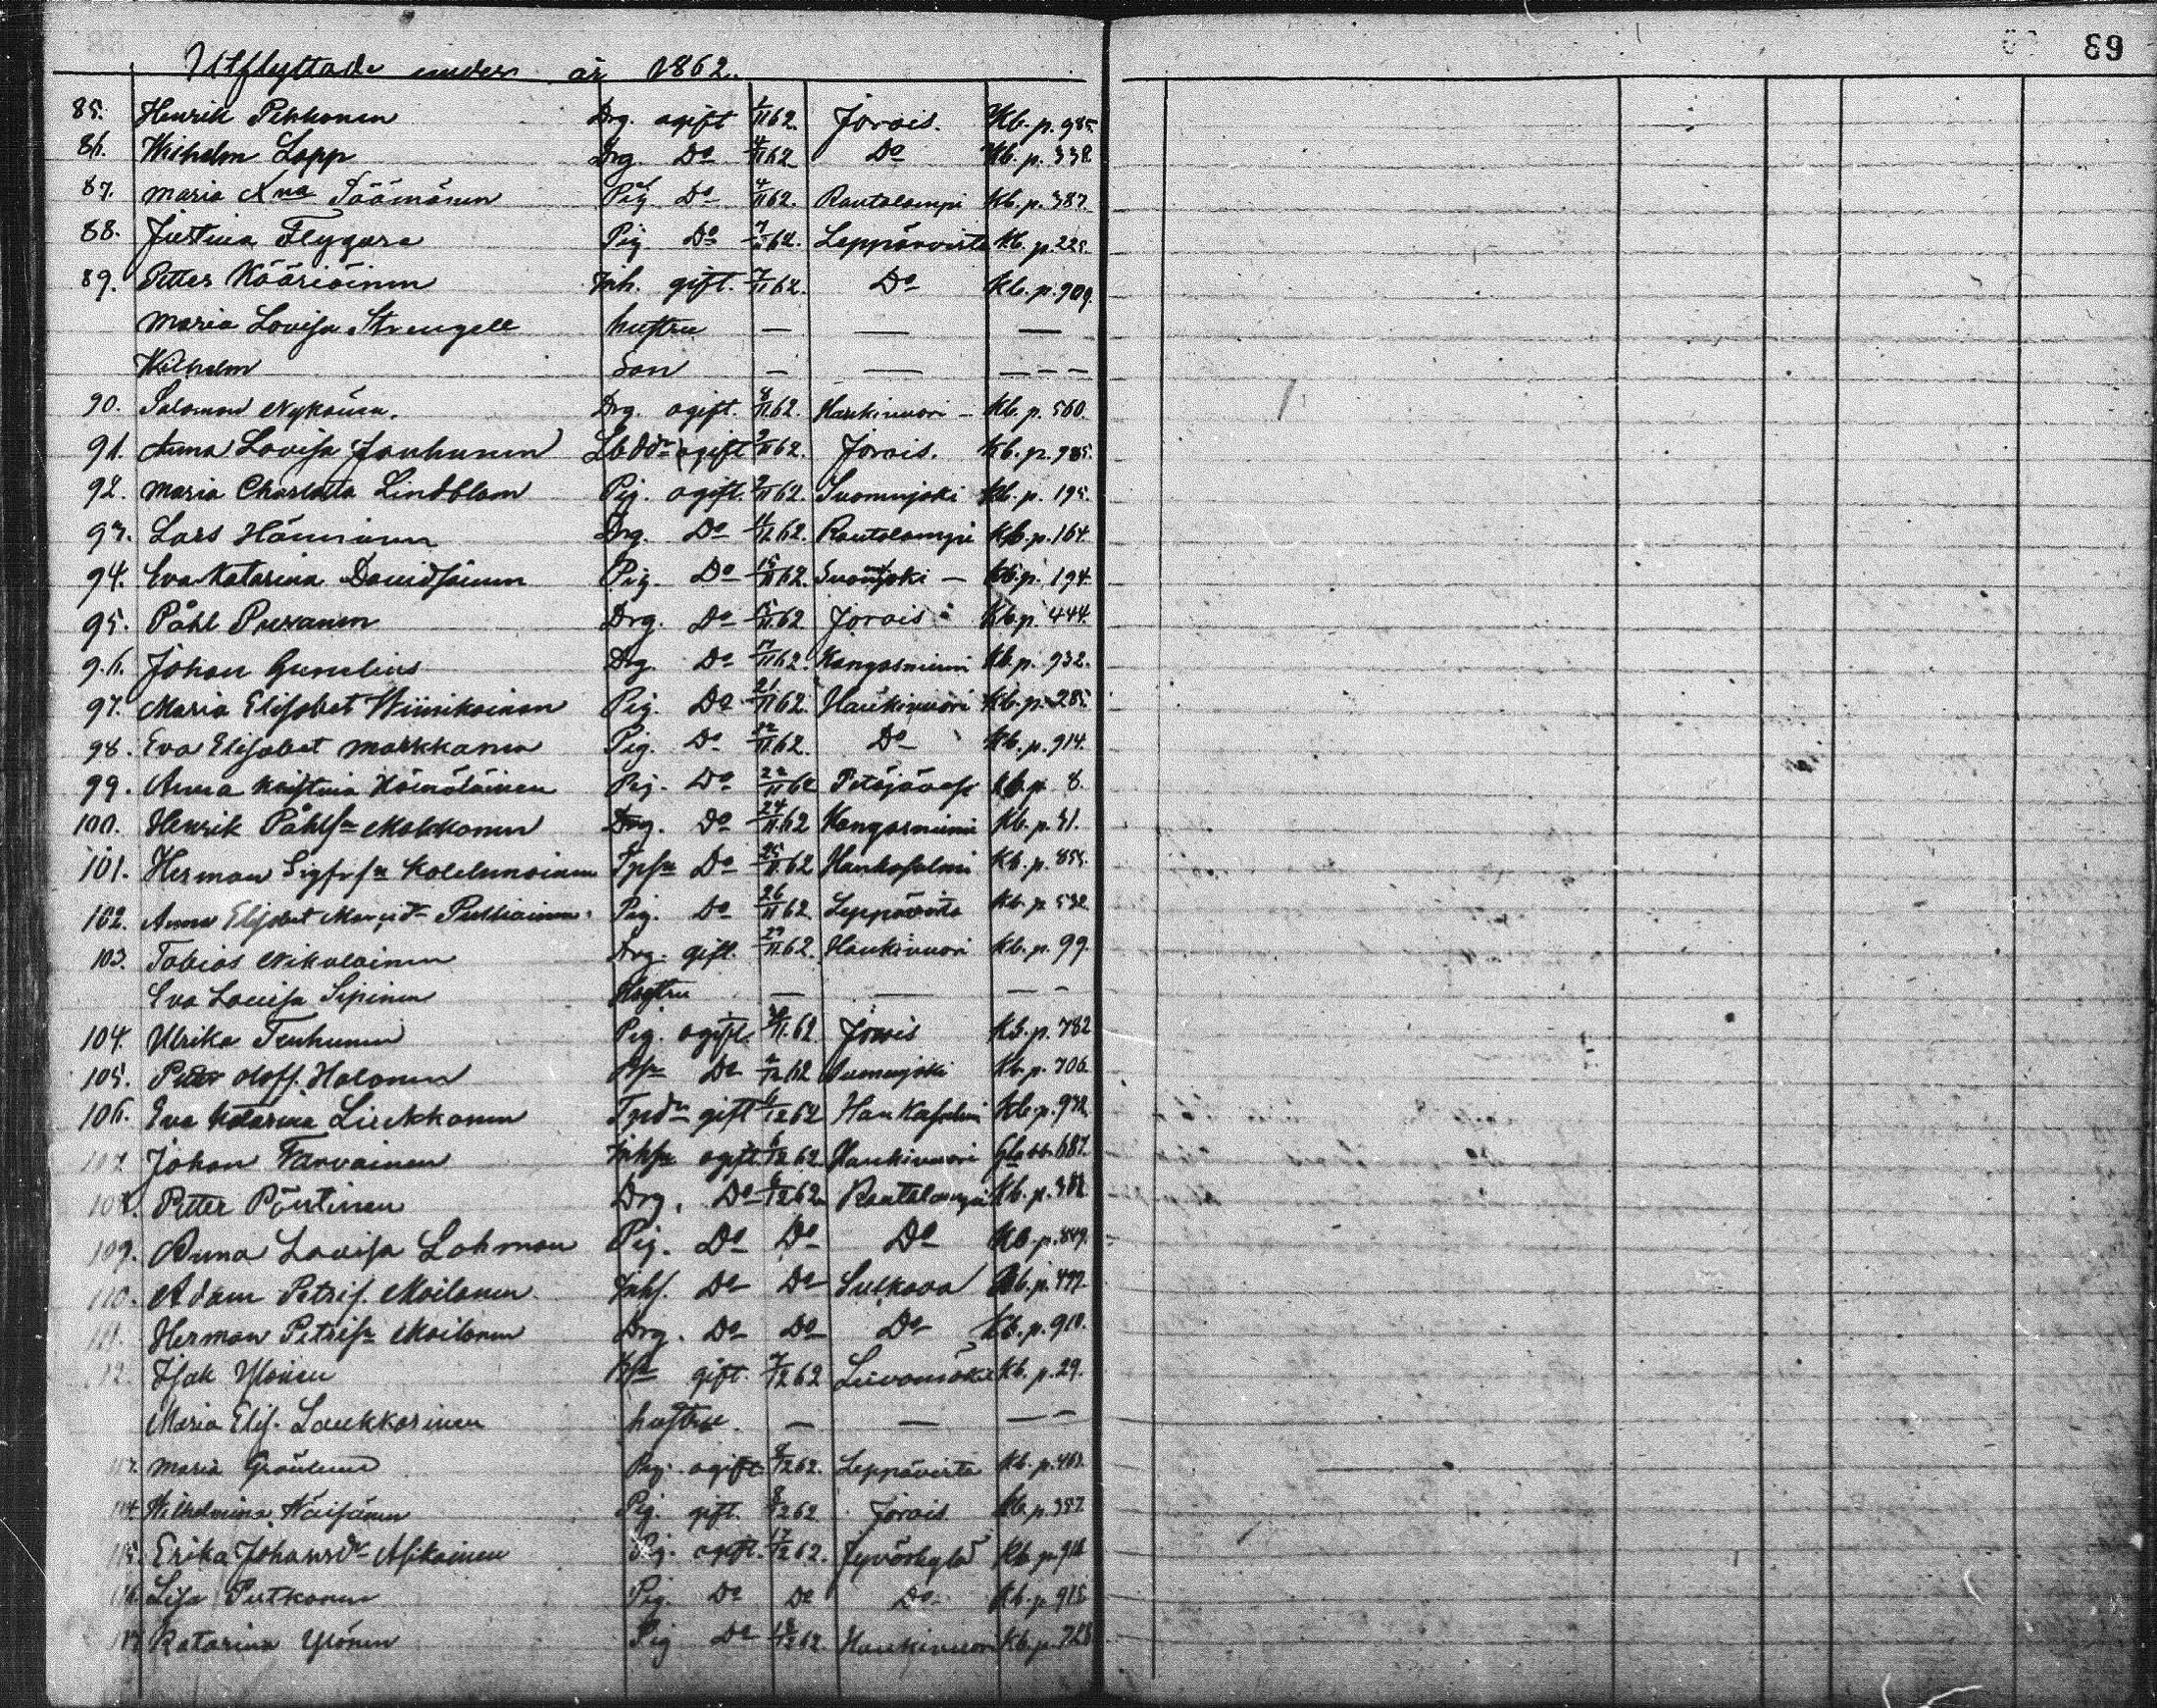 89
Utflyttade under år 1862.
85. Henrik Pekkonen Drg. ogift 1/11 62. Jorois. Kb. p. 985.
86. Wilhelm Lapp Drg. Do 4/11 62 Do Kb. p. 338.
87. Maria Kna Pig. Do 4/11 62. Rautalampi Kb. p. 387.
88. Justina Flygare Pig. Do 7/11 62. Leppävirta Kb. p. 225.
89. Petter Kääriäinen Inh. gift. 7/11 62. Do Kb. p. 909.
Maria Lovisa Strengell hustru — — —
Wilhelm Son — — — — —
90. Salomon Nykänen. Drg. ogift. 8/11 62. Haukivuori — Kb. p. 560.
91. Anna Lovisa Jauhunen ogift 9/11 62. Jorois. Kb. p. 985.
92. Maria Charlotta Lindblom Pig. ogift. 9/11 62. Suonnejoki Kb. p. 195.
93. Lars Hänninen Drg. Do 11/11 62. Rautalampi Kb. p. 164.
94. Eva Katarina Davidsainen Pig. Do 15/11 62. Suonnejoki — Kb. p. 194.
95. Påhl Puranen Drg. Do 15/11 62. Jorois Kb. p. 444.
96. Johan Gumelius Drg. Do 17/11 62. Kangasniemi Kb. p. 932.
97. Maria Elisabet Wiinikainen Pig. Do 21/11 62. Haukivuori Kb. p. 285.
98. Eva Elisabet Markkanen Pig. Do 22/11 62. Do Kb. p. 914.
99. Anna Kristina Hämäläinen Pig. Do 22/11 62 Petäjävesi Kb. p. 8.
100. Henrik Påhlsn Makkonen Drg. Do 24/11 62 Kangasniemi Kb. p. 51.
101. Herman Sigfrsn Kolehmainen Do 25/11 62 Hankasalmi Kb. p. 855.
102. Anna Elisabet Pulliainen. Pig. Do 26/11 62. Leppävirta Kb. p. 532.
103. Tobias Nikulainen Drg. gift. 29/11 62. Haukivuori Kb. p. 99.
Eva Lovisa Sipinen Hustru — — — —
104. Ulrika Tenhunen Pig. ogift. 11. 62. Jorois Kb. p. 782
105. Petter Olofs. Halonen Do 2/12 62 Suonnejoki Kb. p. 706.
106. Eva Katarina Liukkonen gift 12 62 Hankasalmi Kb. p.
107. Johan Tarvainen Inhsn ogift. 6/12 62 Haukivuori 687.
108. Petter Pöntinen Drg. Do 6/12 62 Rautalampi Kb. p.
109. Anna Lovisa Lohman Pig. Do Do Do Kb. p. 849.
110. Adam Petris. Moilanen Inhs. Do Do Sulkava Kb. p. 497.
111. Herman Petrisn Moilanen Drg. Do Do Do Kb. p. 910.
112. Isak Ylönen Bsn gift. 7/12 62 Leivonmäki Kb. p. 29.
Maria Elis. Laukkarinen hustru — — — —
113. Maria Grönlund Pig. ogift 8/12 62. Leppävirta Kb. p. 463.
114. Wilhelmina Väisänen Pig. gift. 8/12 62 Jorois Kb. p. 357.
115. Erika Johansdr Asikainen Pig. ogift. 17/12 62. Jyväskylä Kb. p.
116. Lisa Putkonen Pig. Do Do Do Kb. p. 915
117. Katarina Ylönen Pig Do 18/12 62 Haukivuori Kb. p. 728